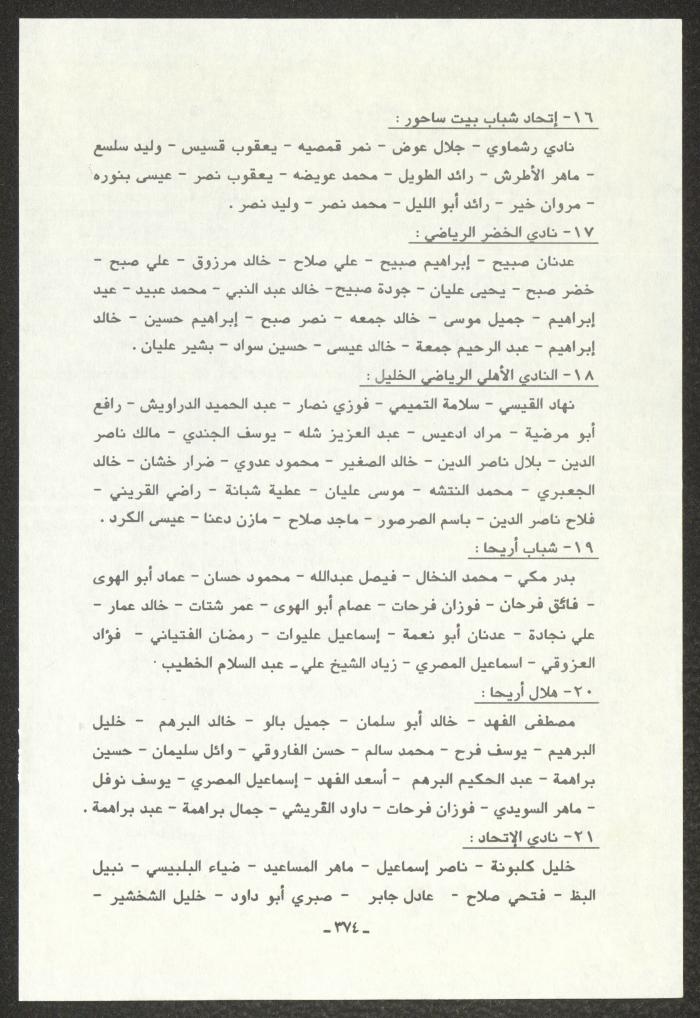 ١٦- إتحاد شباب بيت ساحور :
نادي رشماوي - جلال عوض - نمر قمصيه - يعقوب قسيس - وليد سلسع
- ماهر الأطرش - رائد الطويل - محمد عويضه - يعقوب نصر - عيسى بنوره
- مروان خير - رائد أبو الليل - محمد نصر - وليد نصر .
١٧- نادي الخضر الرياضي :
عدنان صبيح - إبراهيم صبيح - علي صلاح - خالد مرزوق - علي صبح -
خضر صبح - يحيى عليان - جودة صبيح- خالد عبد النبي - محمد عبيد - عيد
إبراهيم - جميل موسى - خالد جمعه - نصر صبح - إبراهيم حسين - خالد
إبراهيم - عبد الرحيم جمعة - خالد عيسى - حسين سواد - بشير عليان .
١٨- النادي الأهلي الرياضي الخليل :
نهاد القيسي - سلامة التميمي - فوزي نصار - عبد الحميد الدراويش - رافع
أبو مرضية - مراد ادعيس - عبد العزيز شله - يوسف الجندي - مالك ناصر
الدين - بلال ناصر الدين - خالد الصغير - محمود عدوي - ضرار خشان - خالد
الجعبري - محمد النتشه - موسى عليان - عطية شبانة - راضي القريني -
فلاح ناصر الدين - باسم الصرصور - ماجد صلاح - مازن دعنا - عيسى الكرد .
١٩- شباب أريحا :
بدر مكي - محمد النخال - فيصل عبدالله - محمود حسان - عماد أبو الهوى
- فائق فرحان - فوزان فرحات - عصام أبو الهوى - عمر شتات - خالد عمار -
علي نجادة - عدنان أبو نعمة - إسماعيل عليوات - رمضان الفتياني - فؤاد
العزوقي - اسماعيل المصري - زياد الشيخ علي - عبد السلام الخطيب .
٢٠- هلال أريحا :
مصطفى الفهد - خالد أبو سلمان - جميل بالو - خالد البرهم - خليل
البرهيم - يوسف فرح - محمد سالم - حسن الفاروقي - وائل سليمان - حسين
براهمة - عبد الحكيم البرهم - أسعد الفهد - إسماعيل المصري - يوسف نوفل
- ماهر السويدي - فوزان فرحات - داود القريشي - جمال براهمة - عبد براهمة .
٢١- نادي الإتحاد :
خليل كلبونة - ناصر إسماعيل - ماهر المساعيد - ضياء البلبيسي - نبيل
البظ - فتحي صلاح - عادل جابر - صبري أبو داود - خليل الشخشير -
- ٣٧٤ -